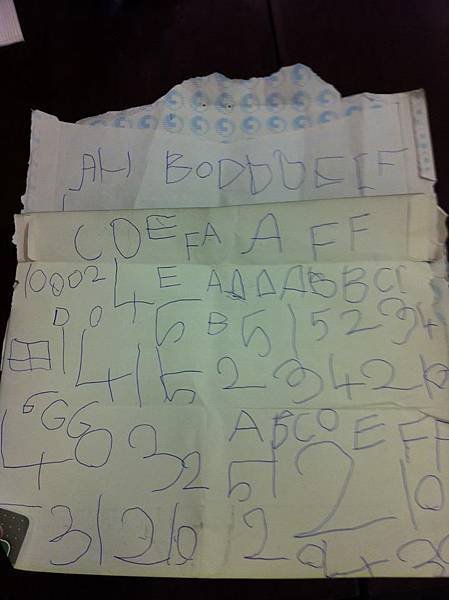 AH BODDUEIF
COEFAAFF
10002 4 E ADDABBCC
DO 5 B 5 1 5 2 3 4
1 4 1 5 2 3 4 2 10
GGG ABCDEFF
4 0 3 2 5 1 2 10
5 3 1 2 10 2 4 3